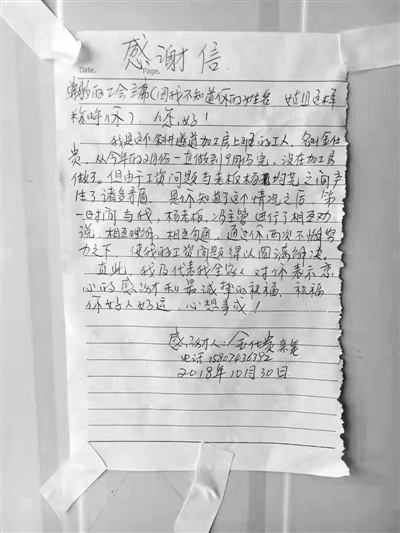 感谢信
Date.
Page.
尊敬的工会主席(因我不知道你的姓名 姑且这样
称呼你)，你好！
我是这个斜井通道加工房上班的工人，名叫金仕
贵，从今年的2月份一直做到9月份完，没在加工房
做了。但由于工资问题与老板杨 均先之间产
生了诸多矛盾，是你知道了这个情况之后，第
一时间与我，杨老板，冯主管进行了相互劝
说，相互理解，相互沟通，通过你两次不懈努
力之下，使我的工资问题得以圆满解决。
在此，我及代表我全家人对你表示衷
心的感谢和最诚挚的祝福，祝福
你好人好运，心想事成！
感谢人：金仕贵亲笔
电话 15902436392
2018年10月30日